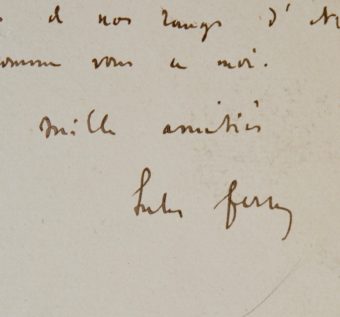 et nos rangs d'
comme vous a moi.
mille amitiés
Jules Ferry